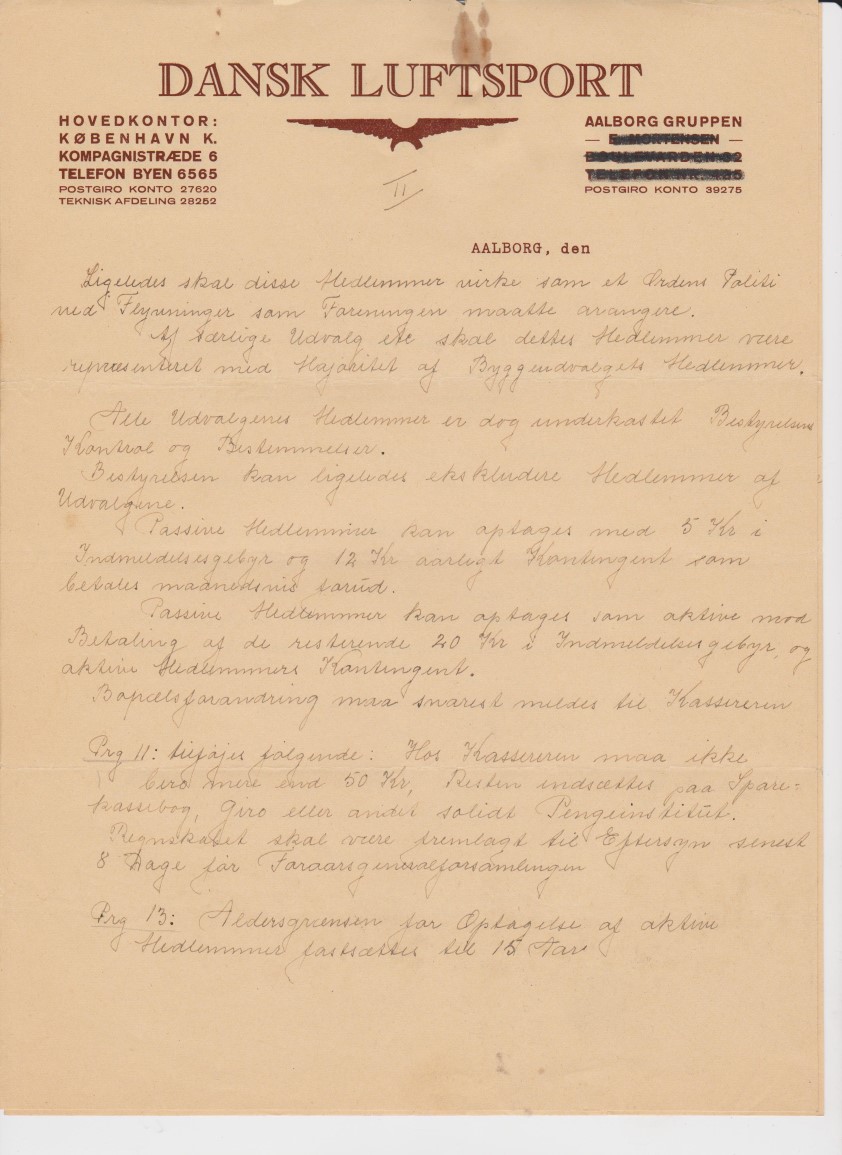 DANSK LUFTSPORT
HOVEDKONTOR:
KØBENHAVN K.
KOMPAGNISTRÆDE 6
TELEFON BYEN 6565
POSTGIRO KONTO 27620
TEKNISK AFDELING 28252
AALBORG GRUPPEN
— E. MORTENSEN —
BOULEVARDEN 32
TELEFON NR. 485
POSTGIRO KONTO 39275
II
AALBORG, den
Ligeledes skal disse Medlemmer virke som et Ordens Politi
ved Flyvninger som Foreningen maatte arangere.
Af særlige Udvalg etc skal dettes Medlemmer være
repræsenteret med Majoritet af Byggeudvalgets Medlemmer.
Alle Udvalgenes Medlemmer er dog underkastet Bestyrelsens
Kontrol og Bestemmelser.
Bestyrelsen kan ligeledes ekskludere Medlemmer af
Udvalgene.
Passive Medlemmer kan optages med 5 Kr i
Indmeldelsesgebyr og 12 Kr aarligt Kontingent som
betales maanedsvis forud.
Passive Medlemmer kan optages som aktive mod
Betaling af de resterende 20 Kr i Indmeldelsesgebyr og
aktive Medlemmers Kontingent.
Bopælsforandring maa snarest meldes til Kassereren
Prg 11: tilføjes følgende: Hos Kassereren maa ikke
bero mere end 50 Kr, Resten indsættes paa Spare-
kassebog, Giro eller andet solidt Pengeinstitut.
Regnskabet skal være fremlagt til Eftersyn senest
8 Dage før Foraarsgeneralforsamlingen
Prg 13: Aldersgrænsen for Optagelse af aktive
Medlemmer fastsættes til 15 Aar